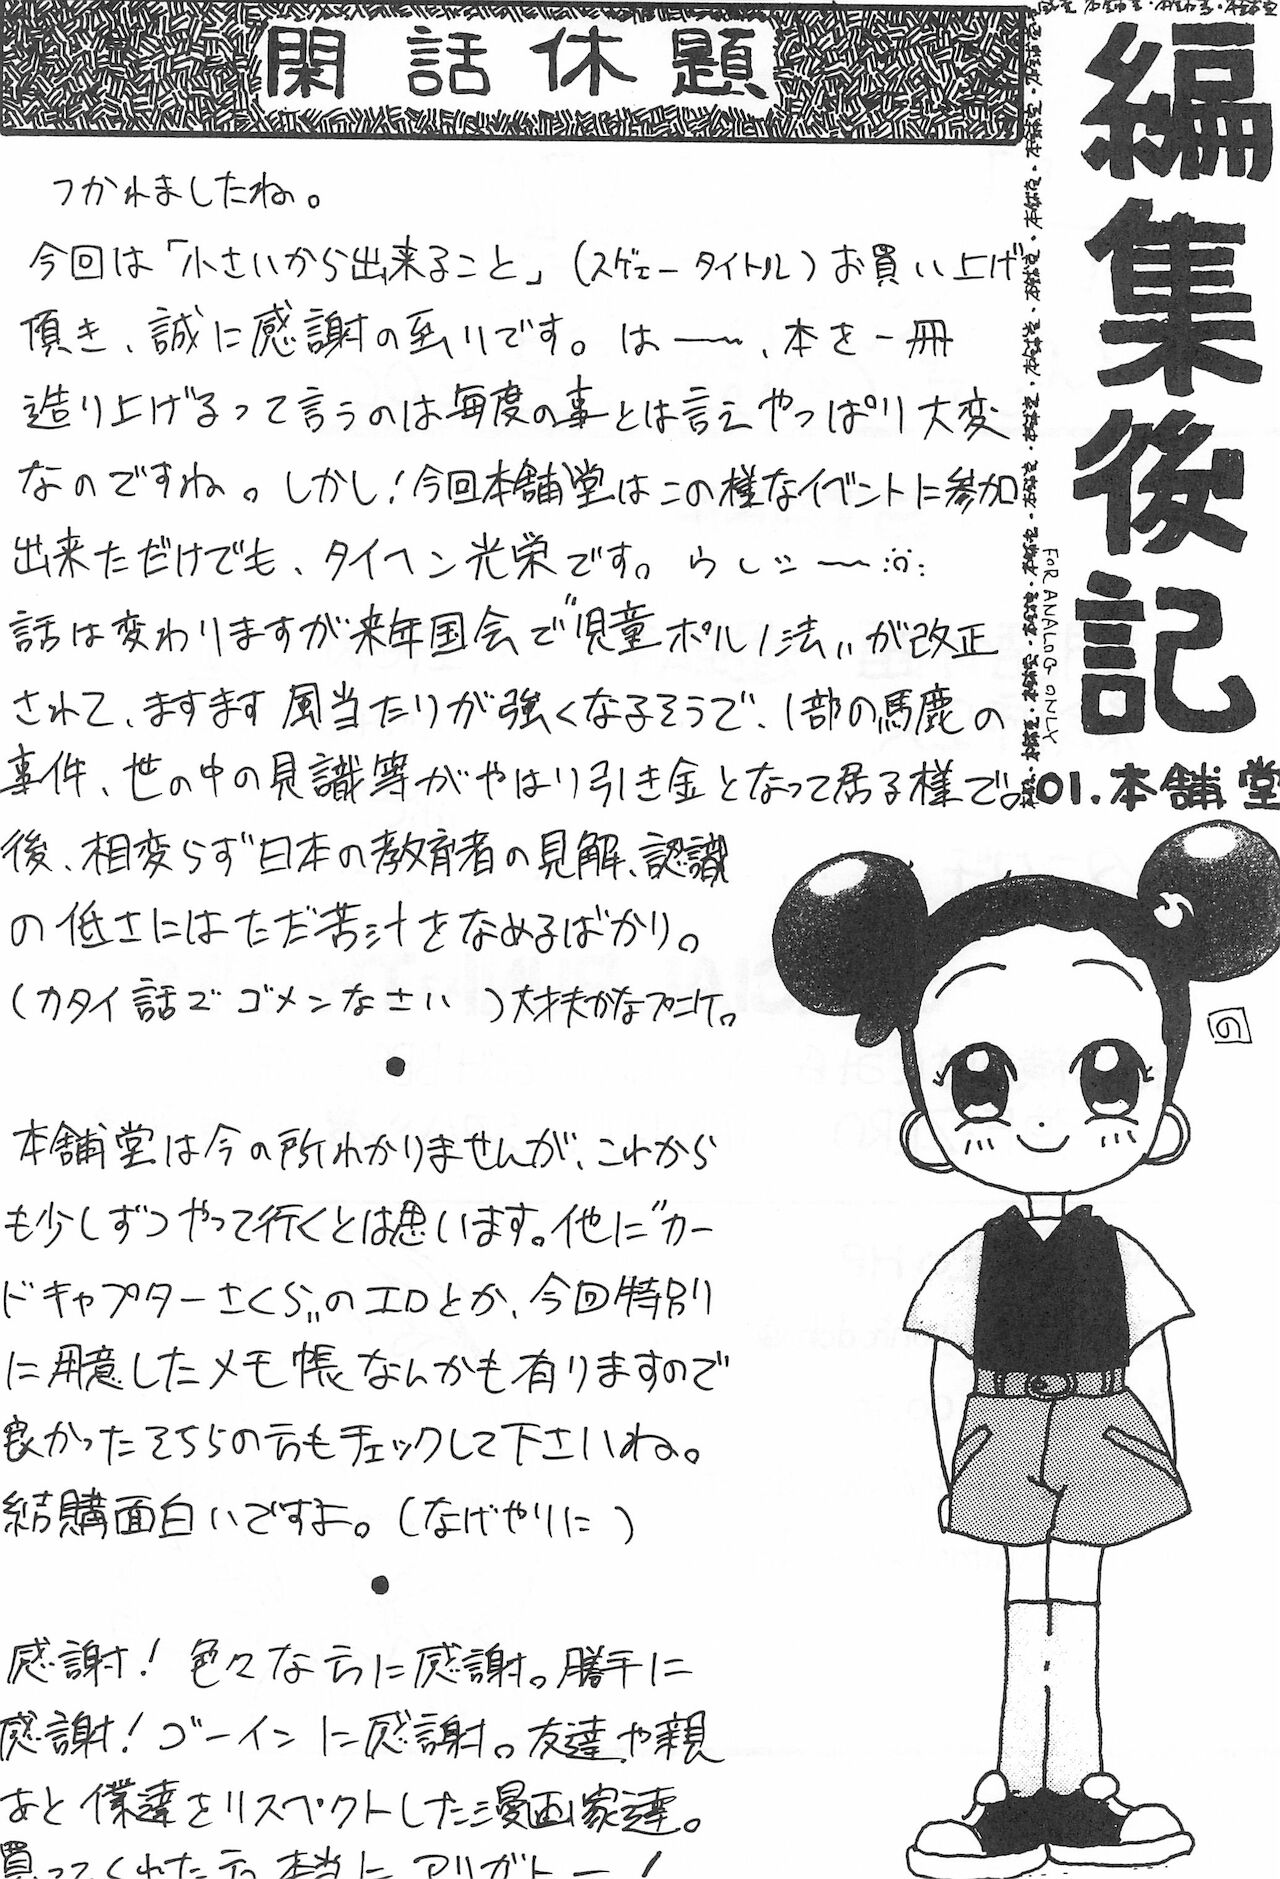 閑話休題
つかれましたね。
今回は「小さいから出来ること」(スゲェータイトル)お買い上げ
頂き、誠に感謝の至りです。はー〜、本を一冊
造り上げるって言うのは毎度の事とは言えやっぱり大変
なのですね。しかし!今回本舗堂はこの様なイベントに参加
出来ただけでも、タイヘン光栄です。らしいー〜
話は変わりますが来年国会で"児童ポルノ法"が改正
されて、ますます風当たりが強くなるそうで、1部の馬鹿の
事件、世の中の見識等がやはり引き金となって居る様で。
後、相変らず日本の教育者の見解、認識
の低さにはただ苦汁をなめるばかり。
(カタイ話でゴメンなさい)大丈夫かな
●
本舗堂は今の所わかりませんが、これから
も少しずつやって行くとは思います。他に"カー
ドキャプターさくら"のエロとか、今回特別
に用意したメモ帳なんかも有りますので
良かったそちらの方もチェックして下さいね。
結購面白いですよ。(なげやりに)
●
感謝!色々な方に感謝。勝手に
感謝!ゴーインに感謝。友達や親
あと僕達をリスペクトした漫画家達。
買ってくれた方本当にアリガトー!
編集後記
FOR ANALOG ONLY
01.本舗堂
の